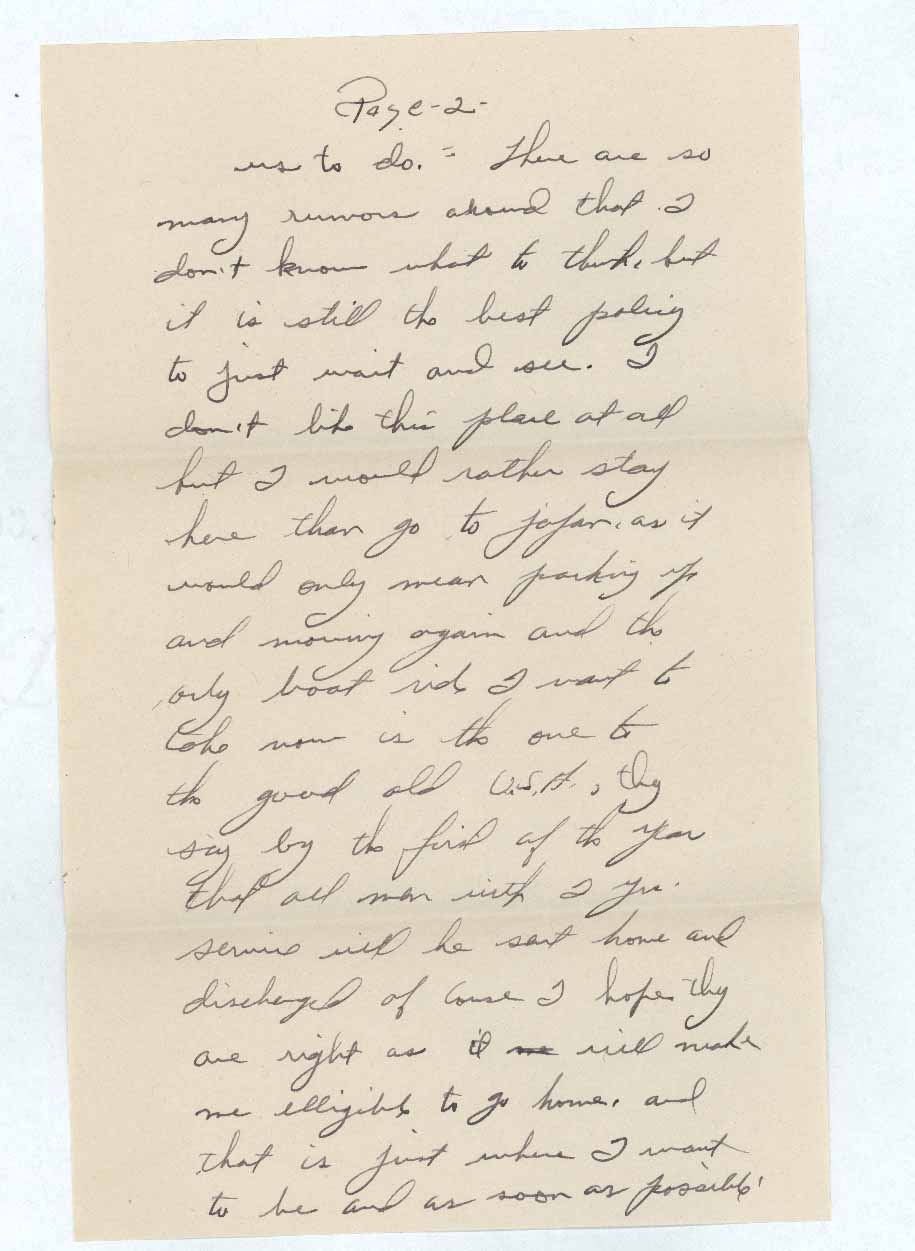 Page -2-
us to do. = There are so
many rumors around that I
don't know what to think, but
it is still the best policy
to just wait and see. I
don't like this place at all
but I would rather stay
here than go to japan, as it
would only mean packing up
and moving again and the
only boat ride I want to
take now is the one to
the good old U.S.A., they
say by the first of the year
that all men with 2 yrs.
service will be sent home and
discharged of couse I hope they
are right as it will make
me elligible to go home, and
that is just where I want
to be and as soon as possible!